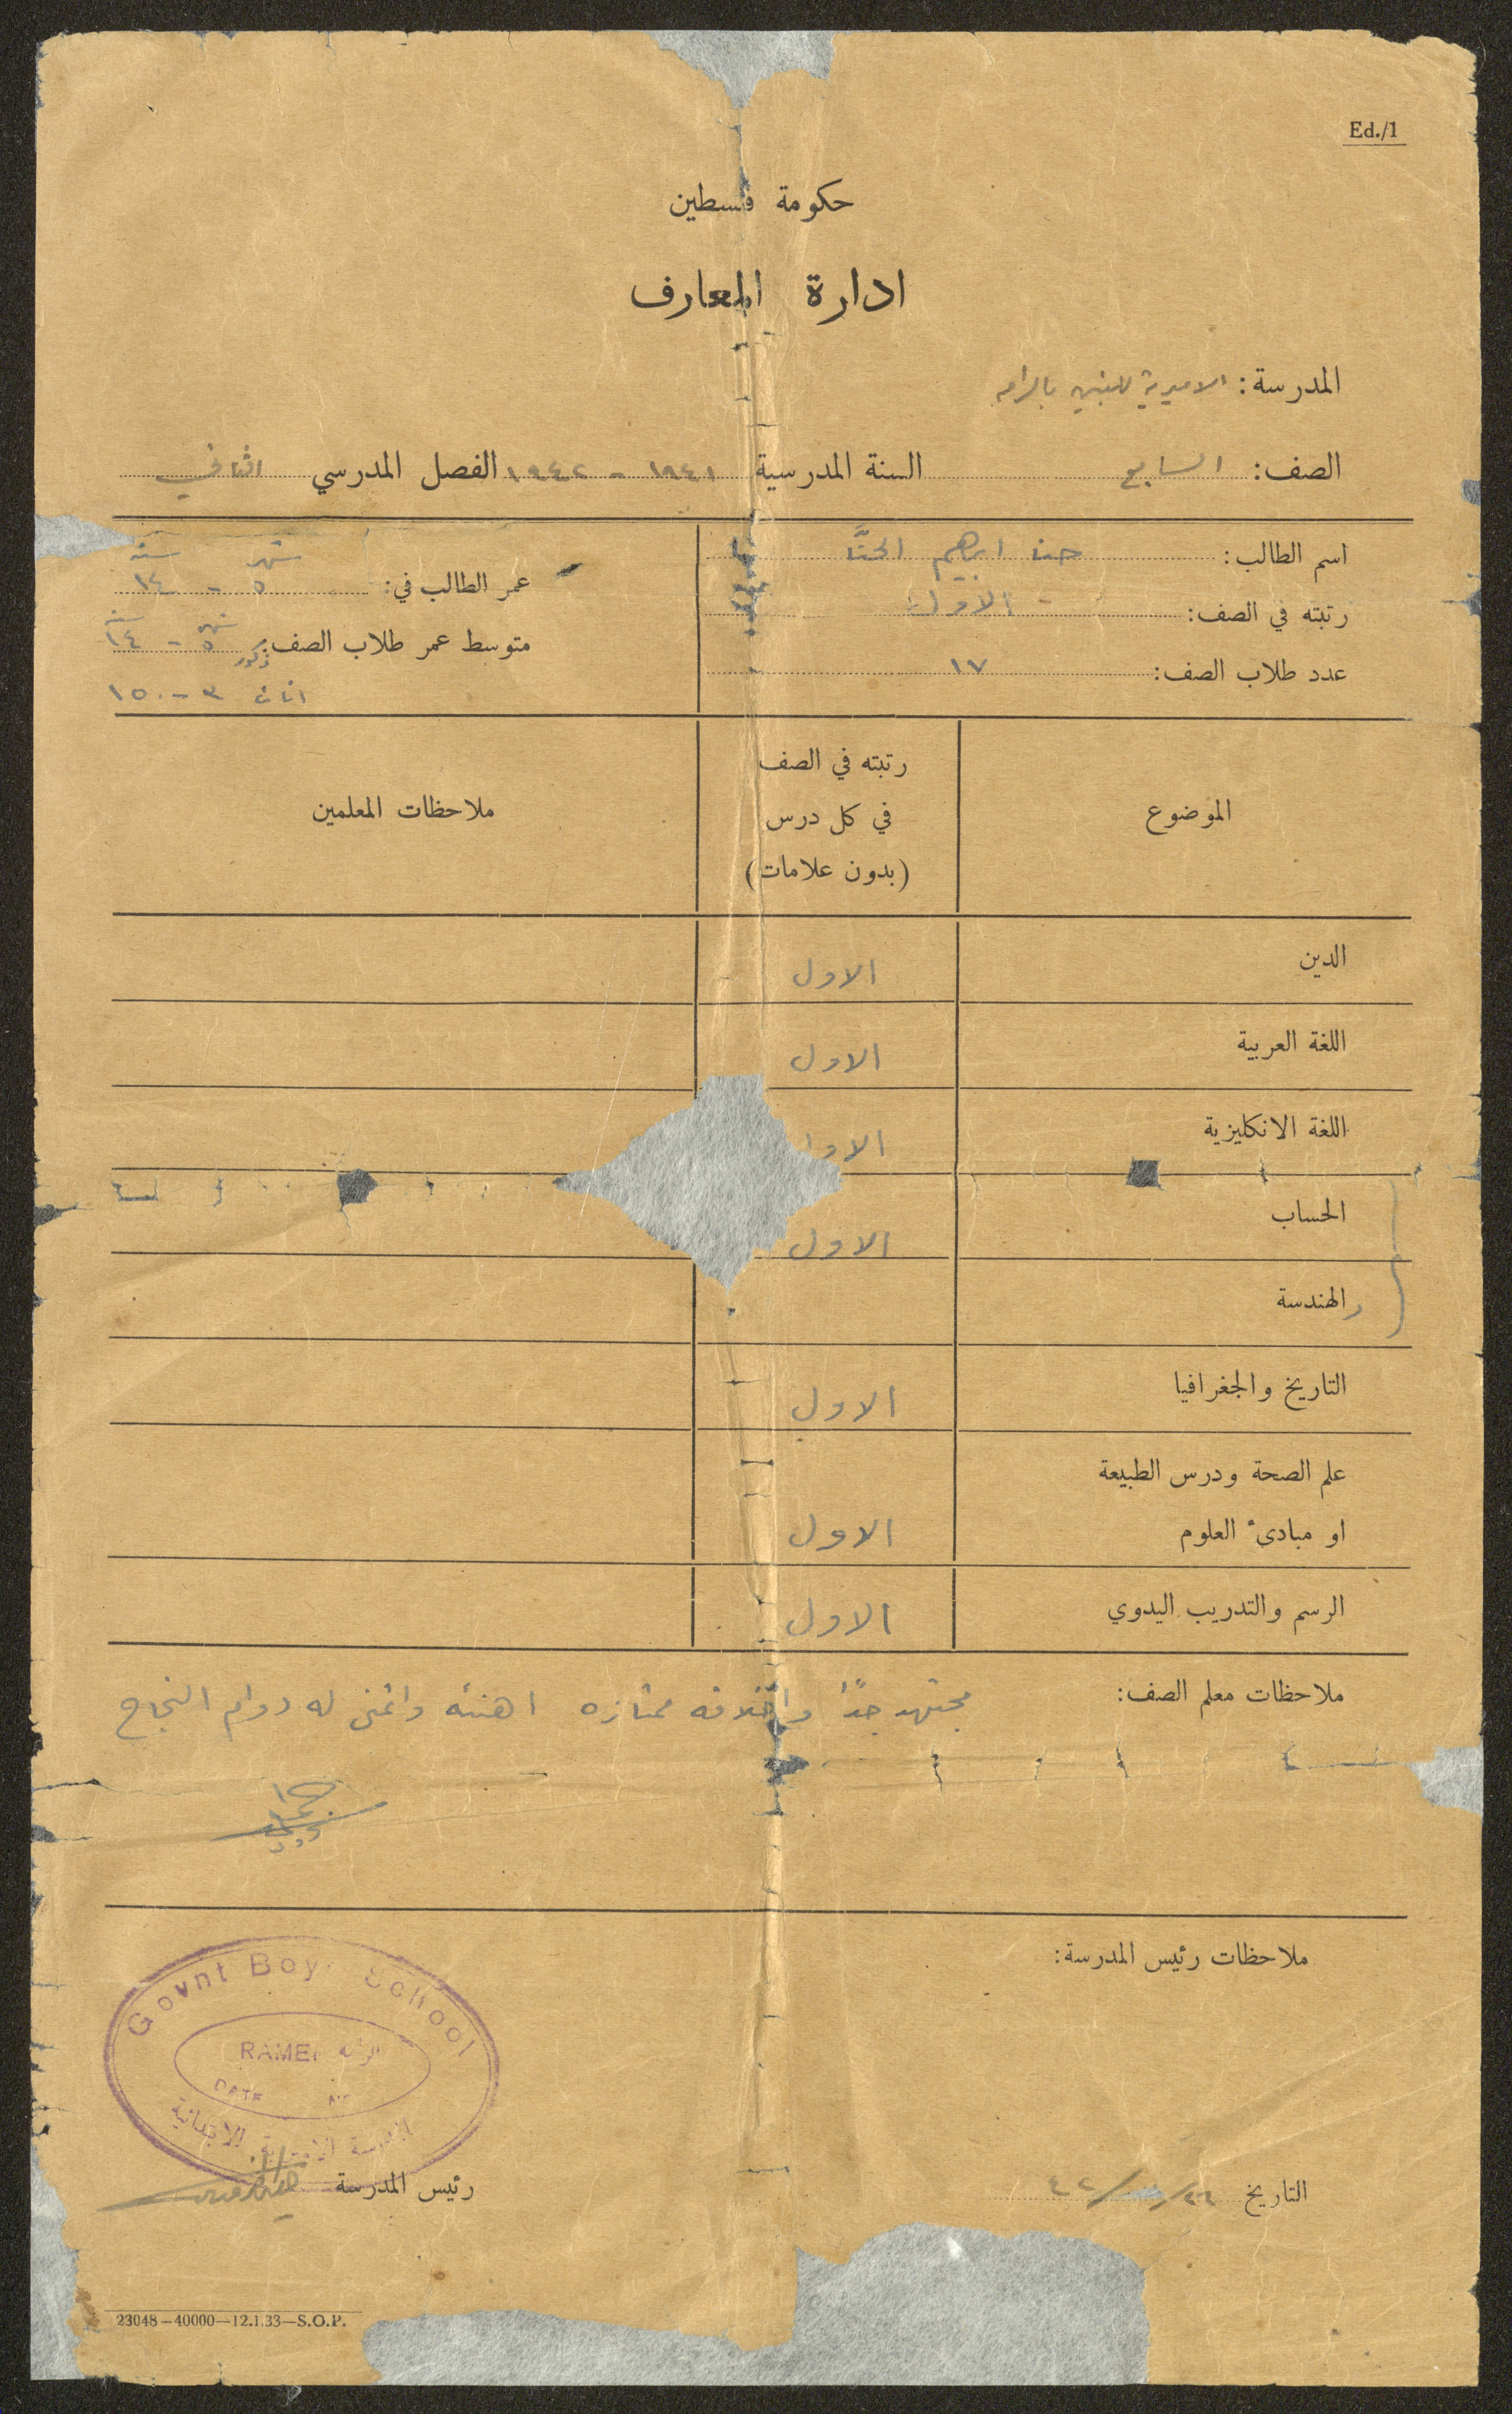 Ed./1
حكومة فلسطين
ادارة المعارف
المدرسة: الاميرية للبنين بالرامه
الصف: السابع السنة المدرسية ١٩٤١ - ١٩٤٢ الفصل المدرسي الثاني
اسم الطالب: حنا ابرهيم الحنَّا
رتبته في الصف: الاول
عدد طلاب الصف: ١٧
شهر سنه
عمر الطالب في: ٥ - ١٤
شهر سنه
متوسط عمر طلاب الصف: ذكور ٥ - ١٤
اناث ٣ - ١٥
الموضوع
رتبته في الصف
في كل درس
(بدون علامات)
ملاحظات المعلمين
الدين الاول
اللغة العربية الاول
اللغة الانكليزية الاو
الحساب الاول
والهندسة
التاريخ والجغرافيا الاول
علم الصحة ودرس الطبيعة
او مبادئ العلوم الاول
الرسم والتدريب اليدوي الاول
ملاحظات معلم الصف: مجتهد جدًا واخلاقه ممتازه اهنئه واتمنى له دوام النجاح
ملاحظات رئيس المدرسة:
Govnt Boys School
RAMEH الرامه
DATE
المدرسة الاميرية الابتدائية
رئيس المدرسة
التاريخ ٤٢
23048—40000—12.1.33—S.O.P.